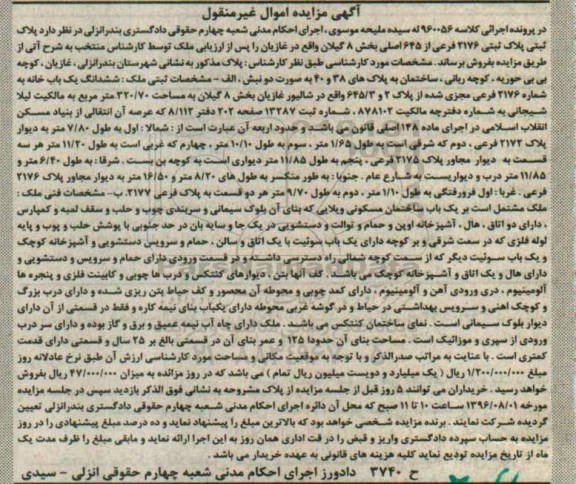 آگهی مزایده اموال غیرمنقول
در پرونده اجرائی کلاسه ۹۶۰۰۵۶ له سیده ملیحه موسوی، اجرای احکام مدنی شعبه چهارم حقوقی دادگستری بندرانزلی در نظر دارد پلاک
ثبتی پلاک ثبتی ۲۱۷۶ فرعی از ۶۴۵ اصلی بخش ۸ گیلان واقع در غازیان را پس از ارزیابی ملک توسط کارشناس منتخب به شرح آتی از
طریق مزایده بفروش برساند. مشخصات مورد کارشناسی طبق نظر کارشناس: پلاک مذکور به نشانی شهرستان بندرانزلی، غازیان، کوچه
بی بی حوریه، کوچه ربانی، ساختمان به پلاک های ۳۸ و ۴۰ به صورت دو نبش، الف - مشخصات ثبتی ملک: ششدانگ یک باب خانه به
شماره ۲۱۷۶ فرعی مجزی شده از پلاک ۲ و ۶۴۵/۳ واقع در شالیور غازیان بخش ۸ گیلان به مساحت ۳۲۰/۷۰ متر مربع به مالکیت لیلا
شیجانی به شماره دفترچه مالکیت ۸۷۸۱۰۲، شماره ثبت ۱۳۲۸۷ صفحه ۲۰۲ دفتر ۸/۱۱۲ که عرصه آن انتقالی از بنیاد مسکن
انقلاب اسلامی در اجرای ماده ۱۴۸ اصلی قانون می باشد و حدود اربعه آن عبارت است از: شمالا: اول به طول ۷/۸۰ متر به دیوار
پلاک ۲۱۷۲ فرعی، دوم که شرقی است به طول ۱/۶۵ متر، سوم به طول ۱۰/۱۰ متر، چهارم که غربی است به طول ۱۱/۲۰ متر هر سه
قسمت به دیوار مجاور پلاک ۲۱۷۵ فرعی، پنجم به طول ۱۱/۸۵ متر دیواری است به کوچه بن بست. شرقا: به طول ۶/۴۰ متر و
۱۱/۸۵ متر درب و دیواریست به شارع عام. جنوبا: به طور منکسر به طول های ۸/۲۰ متر و ۱۶/۵۰ متر به دیوار مجاور پلاک ۲۱۷۶
فرعی. غربا: اول فرورفتگی به طول ۱/۱۰ متر، دوم به طول ۹/۷۰ متر هر دو قسمت به پلاک فرعی ۲۱۷۷. ب- مشخصات فنی ملک:
ملک مشتمل است بر یک باب ساختمان مسکونی ویلایی که بنای آن بلوک سیمانی و سربندی چوب و حلب و سقف لمبه و کمپارس
، دارای دو اتاق، هال، آشپزخانه اوپن و حمام و توالت و دستشویی در یک جا و سایه بان در حد جنوبی با پوشش حلب و پوب و پایه
لوله فلزی که در سمت شرقی و بر کوچه دارای یک باب سوئیت با یک اتاق و سالن، حمام و سرویس دستشویی و آشپزخانه کوچک
و یک باب سوئیت دیگر که از سمت کوچه شمالی راه دسترسی داشته و در قسمت ورودی دارای حمام و سرویس و دستشویی و
دارای هال و یک اتاق و آشپزخانه کوچک می باشند. کف آنها بتن، دیوارهای کنتکس و درب ها چوبی و کابینت فلزی و پنجره ها
آلومینیوم، دری ورودی آهن و آلومینیوم، دارای کمد چوبی و محوطه آن محصور و کف حیاط بتن ریزی شده و دارای درب بزرگ
و کوچک آهنی و سرویس بهداشتی در حیاط و در گوشه غربی محوطه دارای یکباب بنای نیمه کاره و فقط در قسمتی از آن دارای
دیوار بلوک سیمانی است. نمای ساختمان کنتکس می باشند. ملک دارای چاه آب نیمه عمیق و برق و گاز بوده و دارای سر درب
ورودی از سپری و موزائیک است. مساحت بنای آن حدودا ۱۲۵ و عمر بنای آن در قسمتی بالغ بر ۲۵ سال و قسمتی دارای قدمت
کمتری است. با عنایت به مراتب صدرالذکر و با توجه به موقعیت مکانی و مساحت مورد کارشناسی ارزش آن طبق نرخ عادلانه روز
مبلغ ۱/۲۰۰/۰۰۰/۰۰۰ ریال (یک میلیارد و دویست میلیون ریال تمام) می باشد که در روز مزانده به میزان ۴۷/۰۰۰/۰۰۰ ریال بفروش
خواهد رسید. خریداران می توانند ۵ روز قبل از جلسه مزایده از پلاک مشروحه به نشانی فوق الذکر بازدید سپس در جلسه مزایده
مورخه ۱۳۹۶/۰۸/۰۱ ساعت ۱۰ تا ۱۱ صبح که محل آن دائره اجرای احکام مدنی شعبه چهارم حقوقی دادگستری بندرانزلی تعیین
گردیده شرکت نمایند. برنده مزایده شخصی خواهد بود که بالاترین مبلغ را پیشنهاد نماید و ده درصد مبلغ پیشنهادی را در روز
مزایده به حساب سپرده دادگستری واریز و قبض را در وقت اداری همان روز به این اجرا ارائه نماید و مابقی مبلغ را ظرف مدت یک
ماه از تاریخ مزایده تودیع نماید کلیه هزینه های قانونی به عهده خریدار می باشد.
ح ۳۷۴۰ دادورز اجرای احکام مدنی شعبه چهارم حقوقی انزلی - سیدی